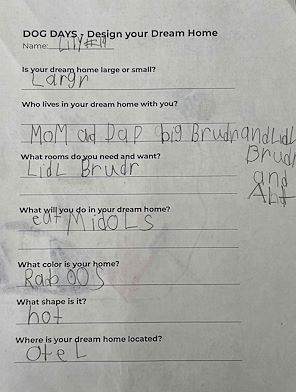 DOG DAYS - Design your Dream Home
Name: Lily #19
Is your dream home large or small?
Largr
Who lives in your dream home with you?
MoM ad DaD big Brudr and Lidl
Brudr
and
What rooms do you need and want?
Lidl Brudr
What will you do in your dream home?
eat MidoLs
What color is your home?
Rab OOS
What shape is it?
hot
Where is your dream home located?
OteL